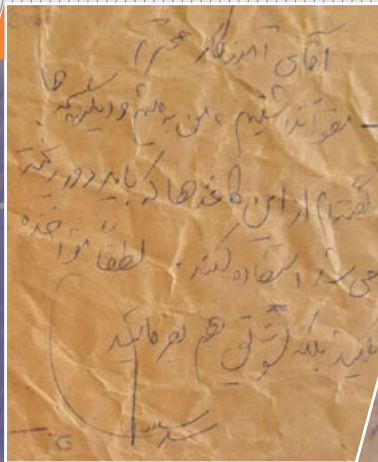 آقای آموزگار محترم
مقوا نداشتیم، من به میثم و دیگر بچه‌ها
گفته‌ام از این کاغذها که باید دور ریخته
می شد استفاده کنند. لطفاً مؤاخذه
نکنید بلکه تشویق هم بفرمائید